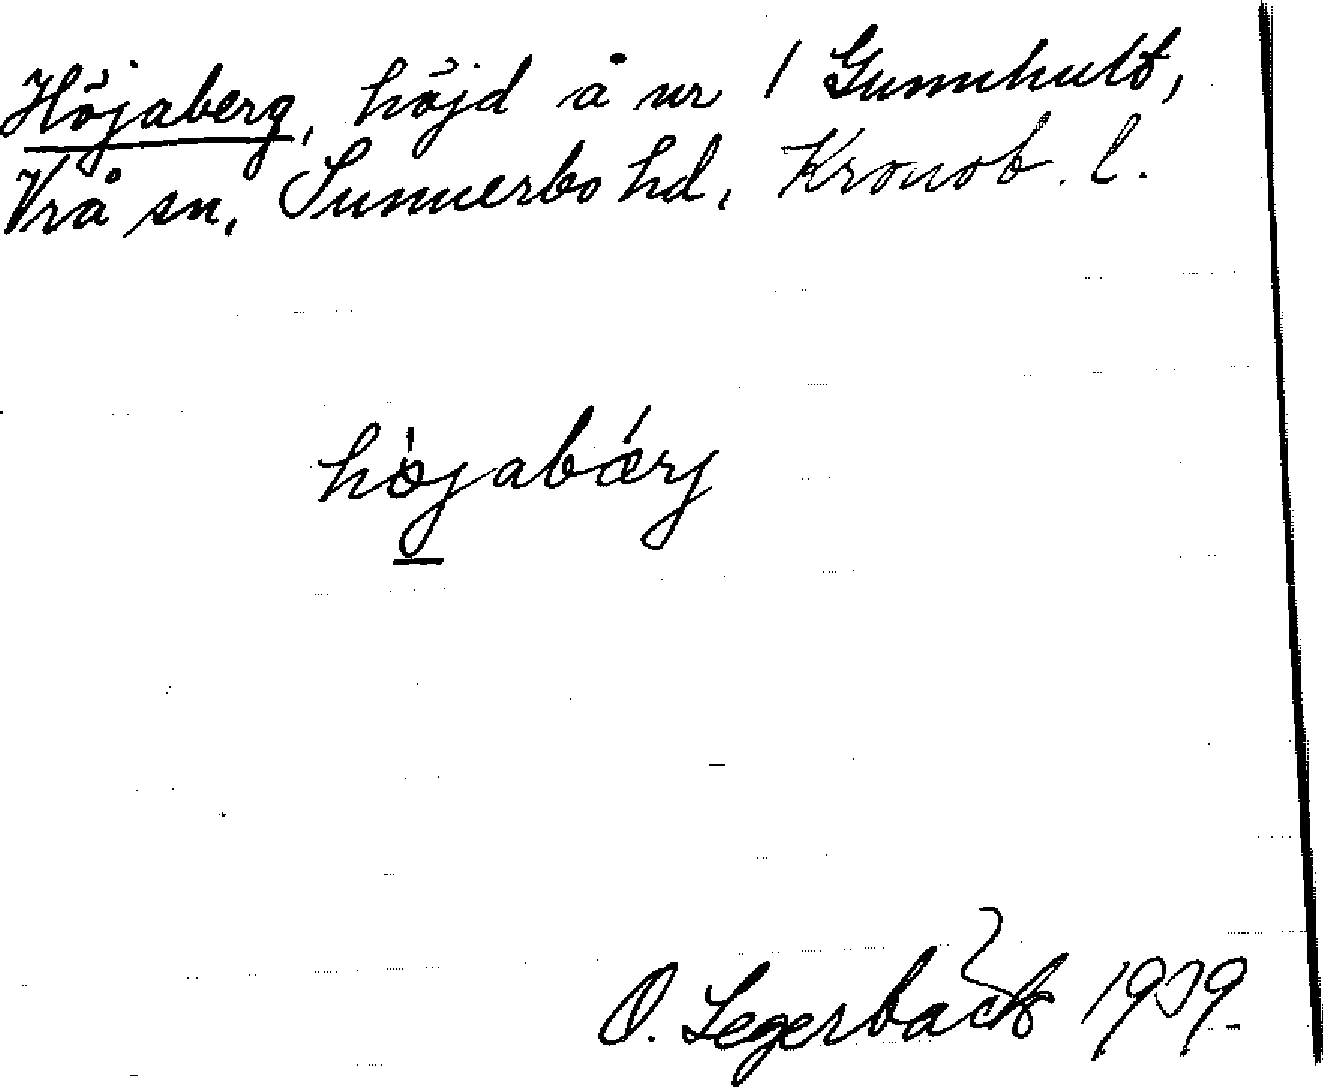 Höjaberg, höjd å nr 1 Gunnhult,
Vrå sn, Sunnerbo hd, Kronob. l.
höjabærj
O. Segerbäck 1939